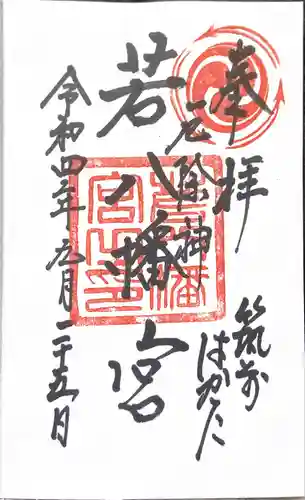 奉拝
筑前
はかた
厄除神
若八幡宮
令和四年元月二十五日
若八幡宮之印